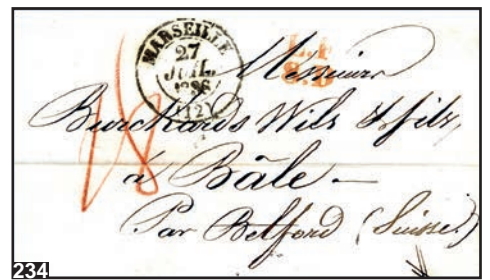 MARSEILLE
27
JUIL.
(12)
Messieurs
Burckhards Wils & filz
à Bâle —
Par Betford (Suisse.)
234